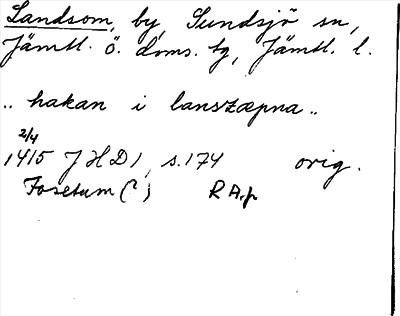 Landsom, by, Sundsjö sn,
Jämtl. ö. doms. tg, Jämtl. l.
.. hakan i lanszæpna ..
2/4
1415 JHD 1, s. 174 orig.
Fosetum (?) RAp